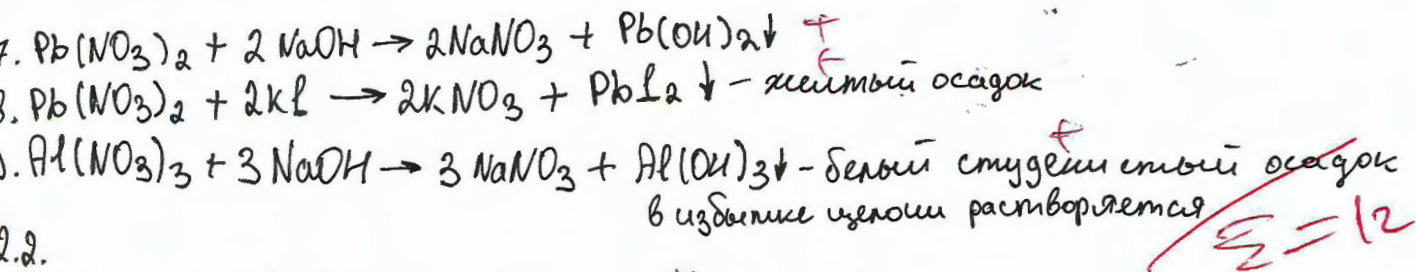 7. Pb(NO₃)₂ + 2 NaOH → 2NaNO₃ + Pb(OH)₂↓ +
8. Pb(NO₃)₂ + 2KI → 2KNO₃ + PbI₂ ↓ - желтый осадок +
9. Al(NO₃)₃ + 3 NaOH → 3 NaNO₃ + Al(OH)₃↓ - белый студенистый осадок +
в избытке щелочи растворяется
Σ = 12
2.2.